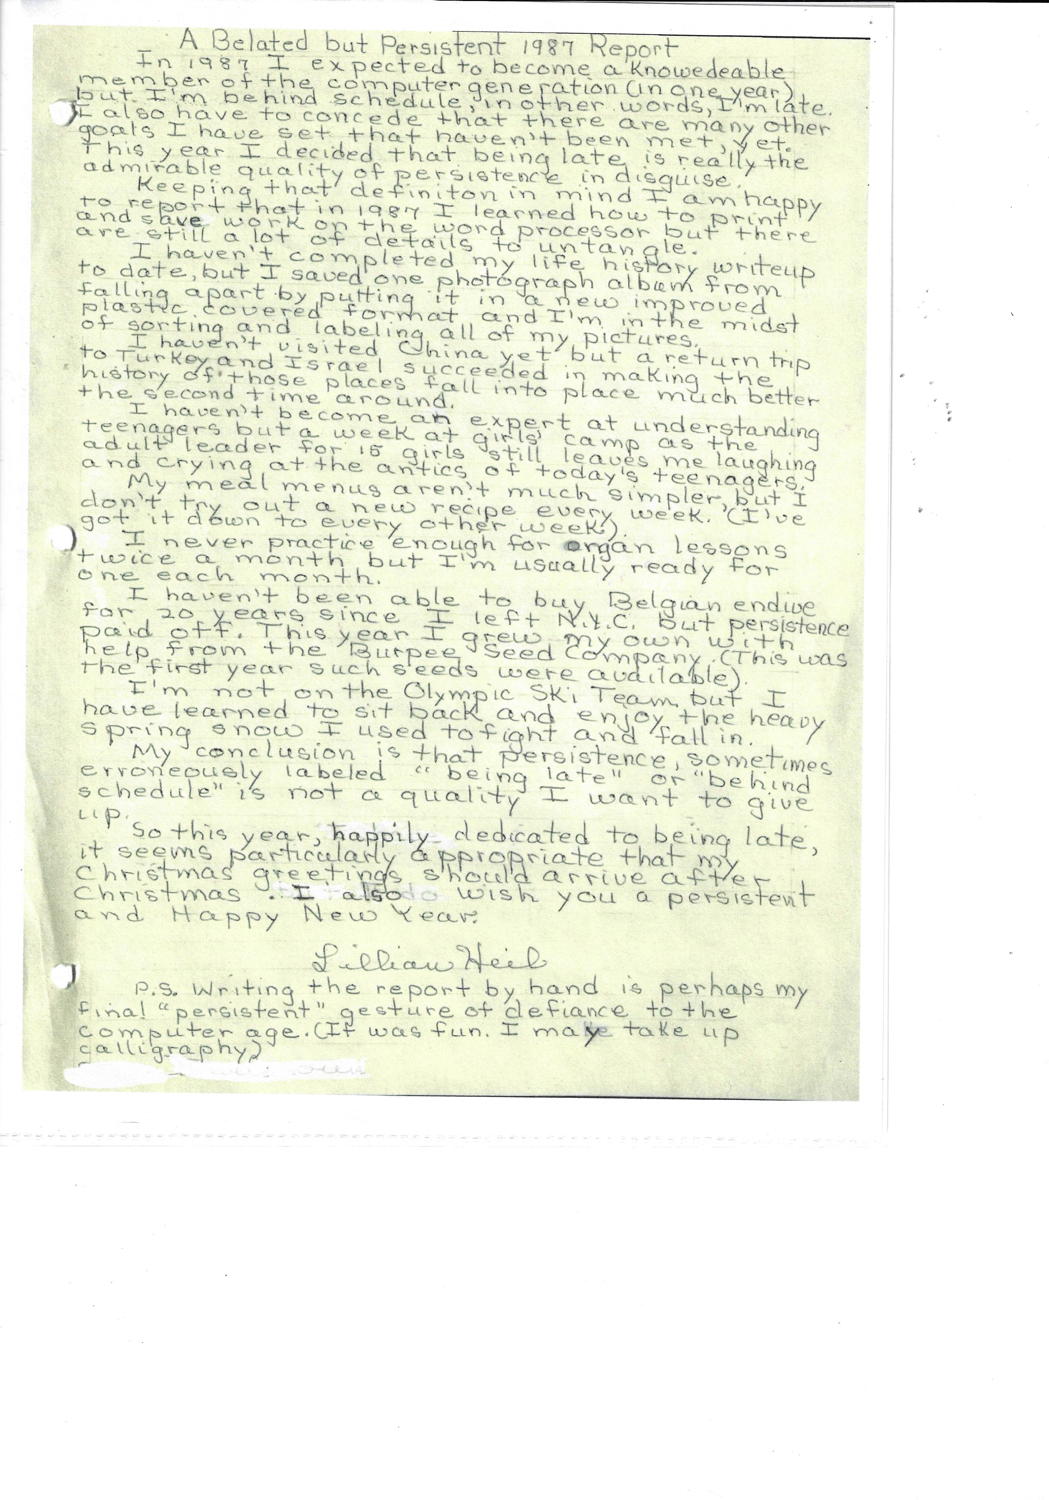 A Belated but Persistent 1987 Report
In 1987 I expected to become a Knowedeable
member of the computer generation (in one year)
but I'm behind schedule, in other words, I'm late.
I also have to concede that there are many other
goals I have set that haven't been met, yet.
This year I decided that being late is really the
admirable quality of persistence in disguise.
Keeping that definiton in mind I am happy
to report that in 1987 I learned how to print
and save work on the word processor but there
are still a lot of details to untangle.
I haven't completed my life history writeup
to date, but I saved one photograph album from
falling apart by putting it in a new improved
plastic covered format and I'm in the midst
of sorting and labeling all of my pictures.
I haven't visited China yet but a return trip
to Turkey and Israel succeeded in making the
history of those places fall into place much better
the second time around.
I haven't become an expert at understanding
teenagers but a week at girls' camp as the
adult leader for 15 girls still leaves me laughing
and crying at the antics of today's teenagers.
My meal menus aren't much simpler, but I
don't try out a new recipe every week. (I've
got it down to every other week).
I never practice enough for organ lessons
twice a month but I'm usually ready for
one each month.
I haven't been able to buy Belgian endive
for 20 years since I left N.Y.C. but persistence
paid off. This year I grew my own with
help from the Burpee Seed Company. (This was
the first year such seeds were available).
I'm not on the Olympic Ski Team but I
have learned to sit back and enjoy the heavy
spring snow I used to fight and fall in.
My conclusion is that persistence, sometimes
erroneously labeled "being late" or "behind
schedule" is not a quality I want to give
up.
So this year, happily dedicated to being late,
it seems particularly appropriate that my
Christmas greetings should arrive after
Christmas. I also wish you a persistent
and Happy New Year.
Lillian Heil
P.S. Writing the report by hand is perhaps my
final "persistent" gesture of defiance to the
computer age. (It was fun. I may take up
calligraphy)